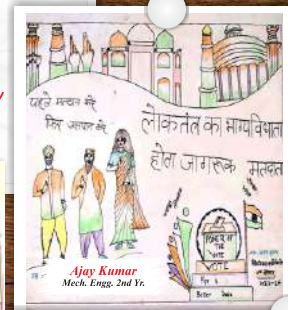 पहले मतदान करें
फिर जलपान करें
लोकतंत्र का भाग्यविधाता
होगा जागरूक मतदाता
POWER OF
THE
VOTE
VOTE
For a
Better India
Ajay Kumar
Mech. Engg. 2nd Yr.